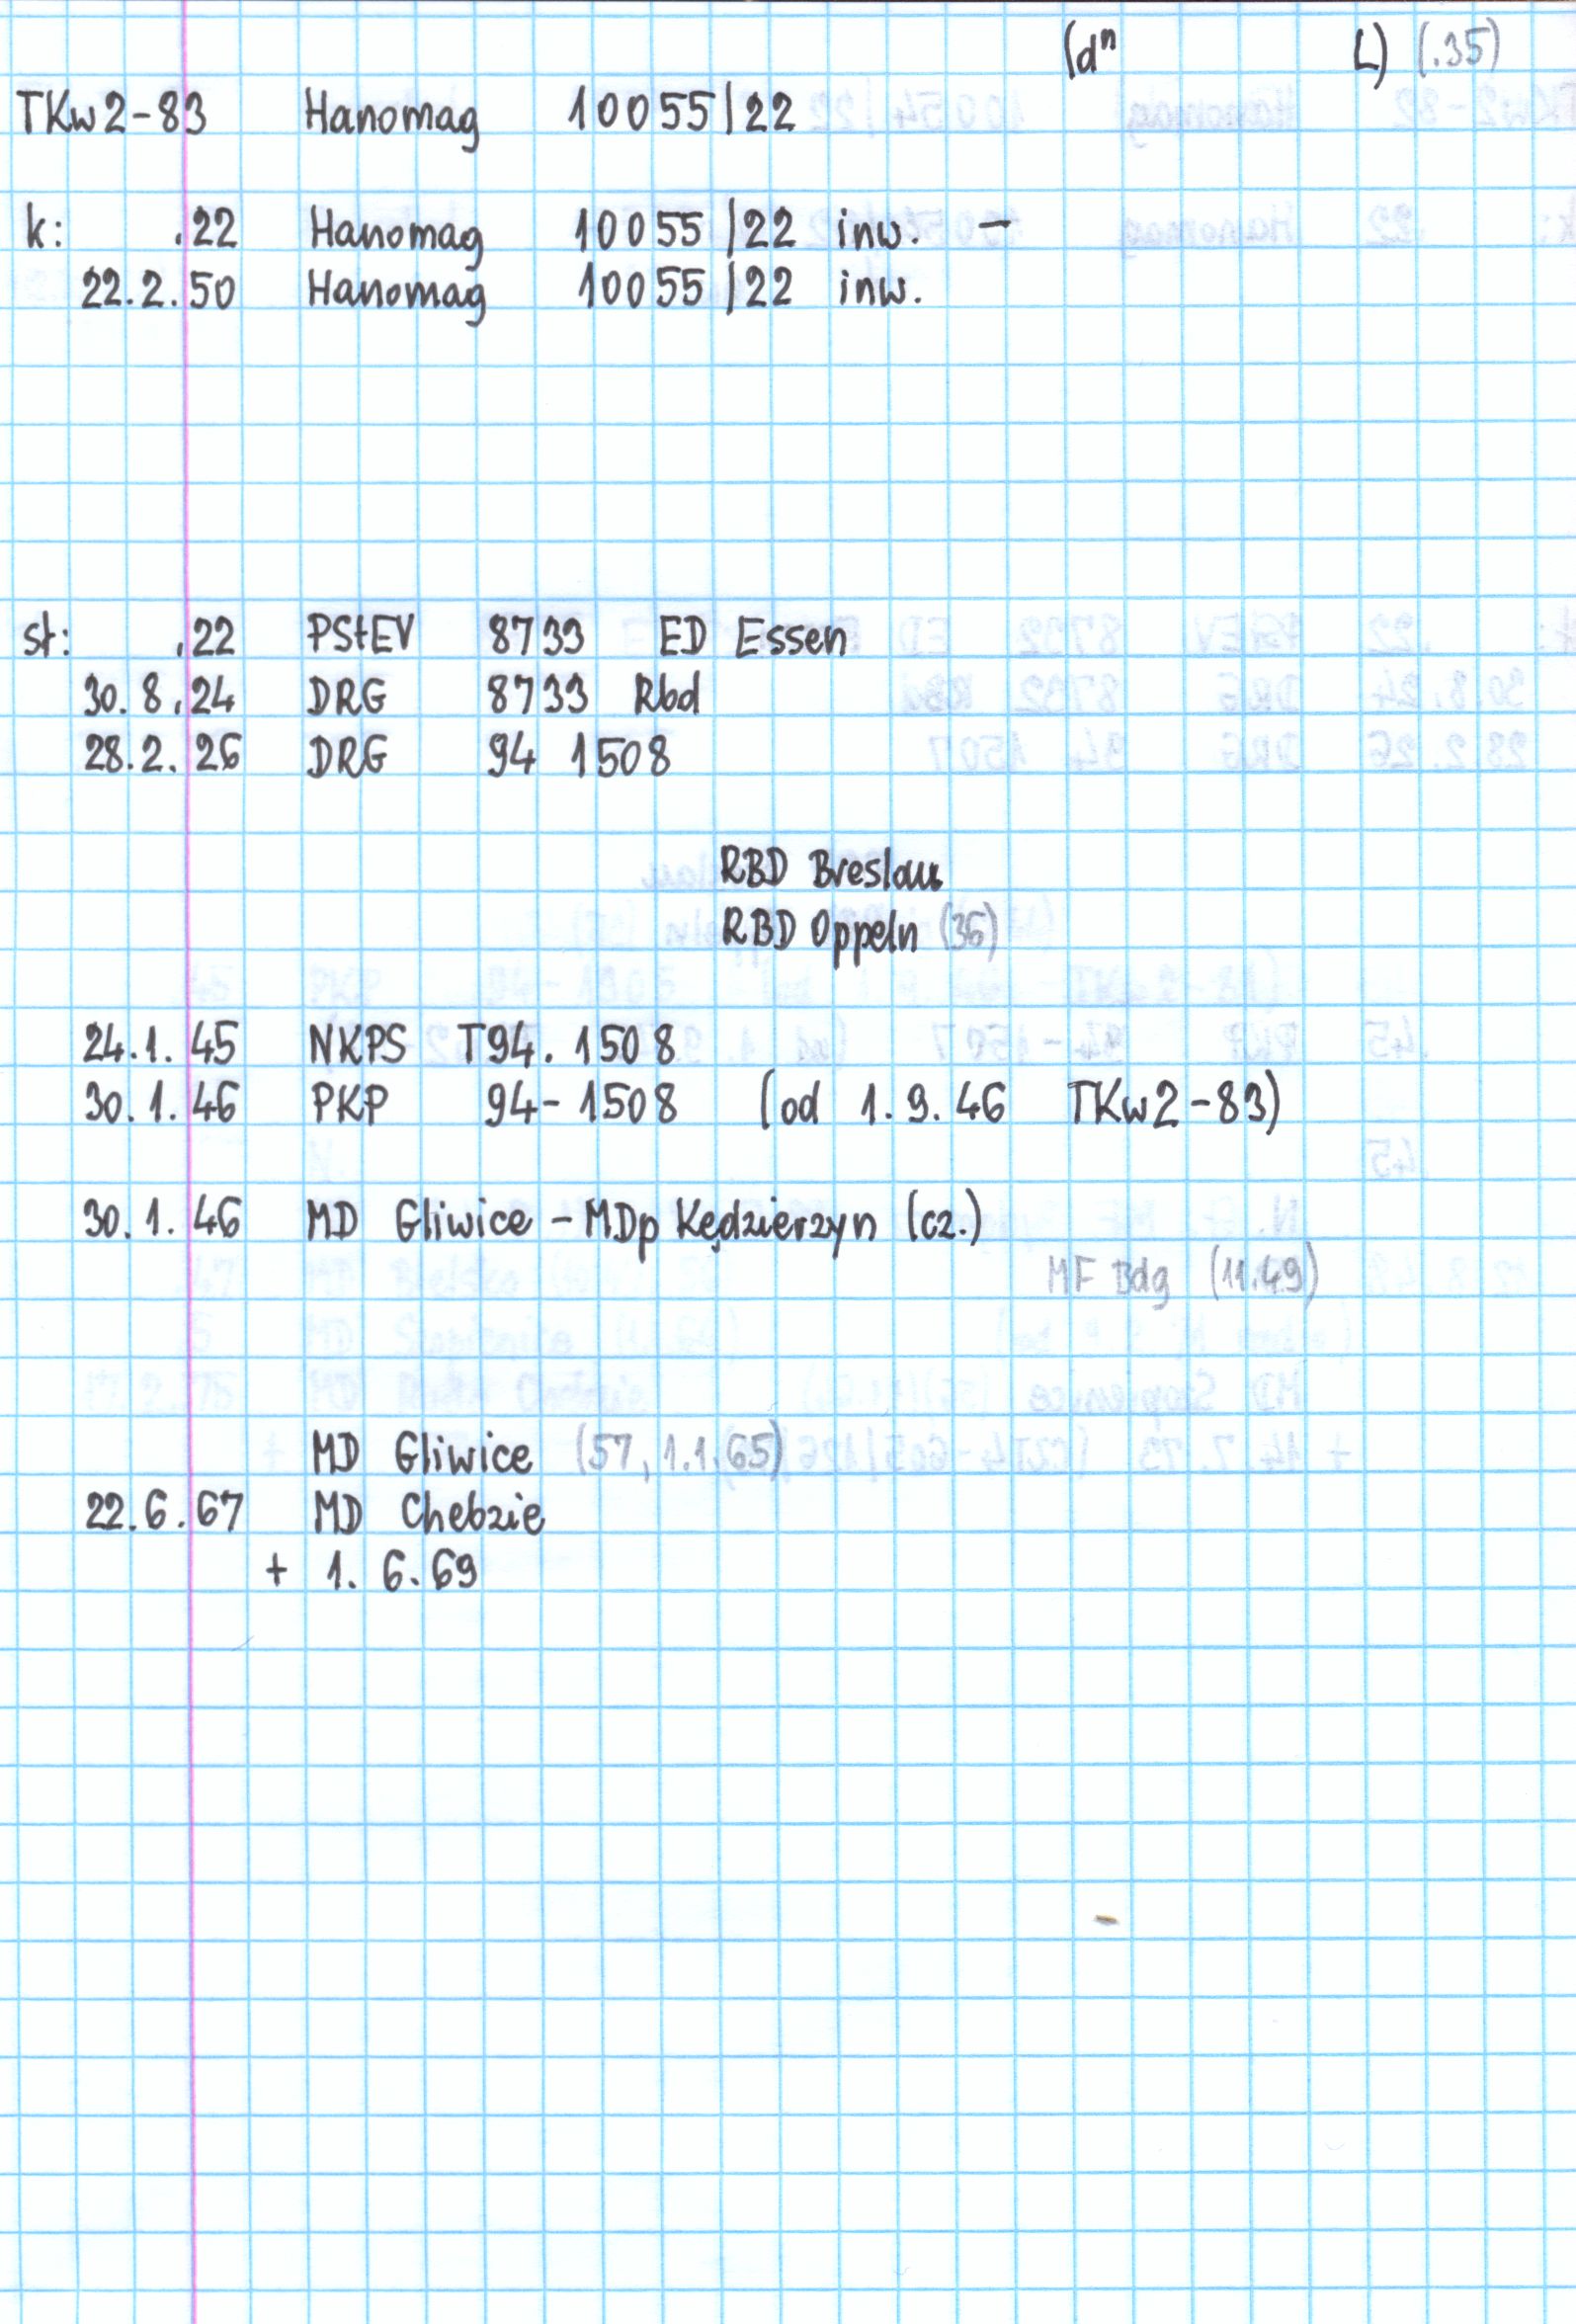 (dⁿ L) (.35)
TKw2-83 Hanomag 10055/22
k: .22 Hanomag 10055/22 inw. –
22.2.50 Hanomag 10055/22 inw.
st: .22 PStEV 8733 ED Essen
30.8.24 DRG 8733 Rbd
28.2.26 DRG 94 1508
RBD Breslau
RBD Oppeln (36)
24.1.45 NKPS T94.1508
30.1.46 PKP 94-1508 (od 1.9.46 TKw2-83)
30.1.46 MD Gliwice – MDp Kędzierzyn (cz.)
MF Bdg (11.49)
MD Gliwice (57, 1.1.65)
22.6.67 MD Chebzie
+ 1.6.69